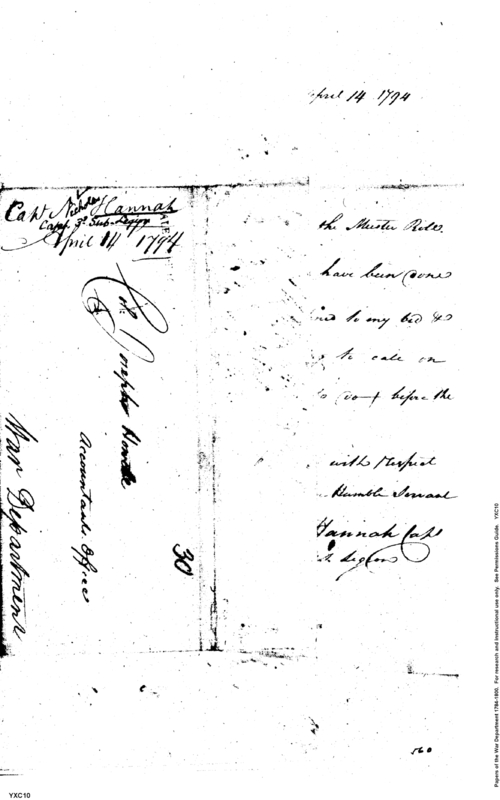 April 14 1794
Capt Nicholas Hannah
Capt. 3d Sub-Legion
April 14 1794
Col.
Joseph Howell
Accountant. Office
War Department
30
the Muster Role
have been Con
ned to my bed &
to call on
before the
with Respect
Humble Servant
Hannah Capt
Legion
560
YXC10
Papers of the War Department 1784-1800. For research and instructional use only. See Permissions Guide YXC10